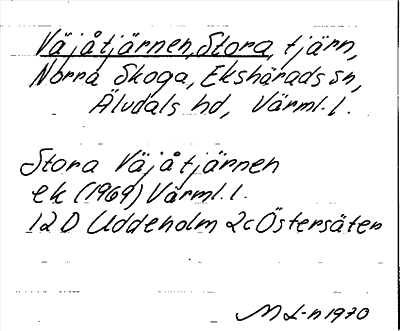 Väjåtjärnen, Stora, tjärn,
Norra Skoga, Ekshärads sn,
Älvdals hd, Värml. l.
Stora Väjåtjärnen
ek (1969) Värml. l.
12 D Uddeholm 2c Östersäten
M L-n 1970